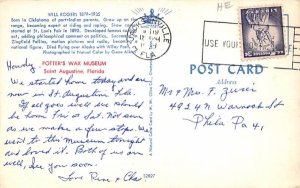 WILL ROGERS 1879-1935
Born in Oklahoma of part-Indian parents. Grew up on the
range, becoming expert at riding and roping. Show
started at St. Louis Fair in 1893. Developed
act, adding philosophical comment on politics. Became
Ziegfeld Follies, motion pictures and radio, became
figure. Died flying over Alaska with Wiley Post.
Photographed in Natural Color by Gene
Howdy
POTTER'S WAX MUSEUM
Saint Augustine, Florida
We started home today and are
now in St. Augustine Fla.
If all goes well we should
be home Fri or Sat. Not sure
as we make a few stops. We
went to this Museum tonight
and loved it. Both of us are
well. See you soon.
Love Rose & Chas
USE YOUR
POST CARD
Address
Mr & Mrs. F.
4924 N Warnock St
Phila Pa 41,